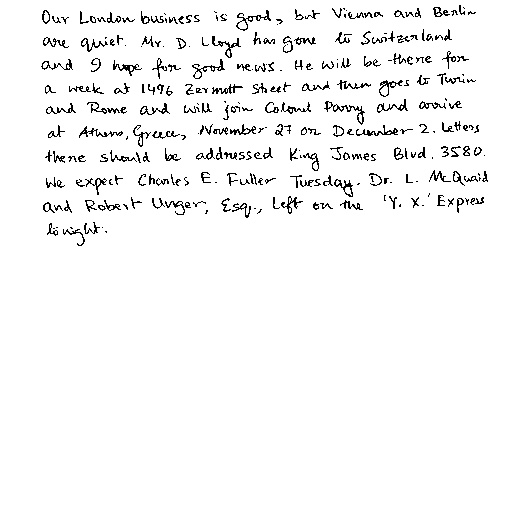 Our London business is good, but Vienna and Berlin
are quiet. Mr. D. Lloyd has gone to Switzerland
and I hope for good news. He will be there for
a week at 1496 Zermott Street and then goes to Turin
and Rome and will join Colonel Parry and arrive
at Athens, Greece, November 27 or December 2. Letters
there should be addressed King James Blvd. 3580.
We expect Charles E. Fuller Tuesday. Dr. L. McQuaid
and Robert Unger, Esq., left on the 'Y. X.' Express
tonight.